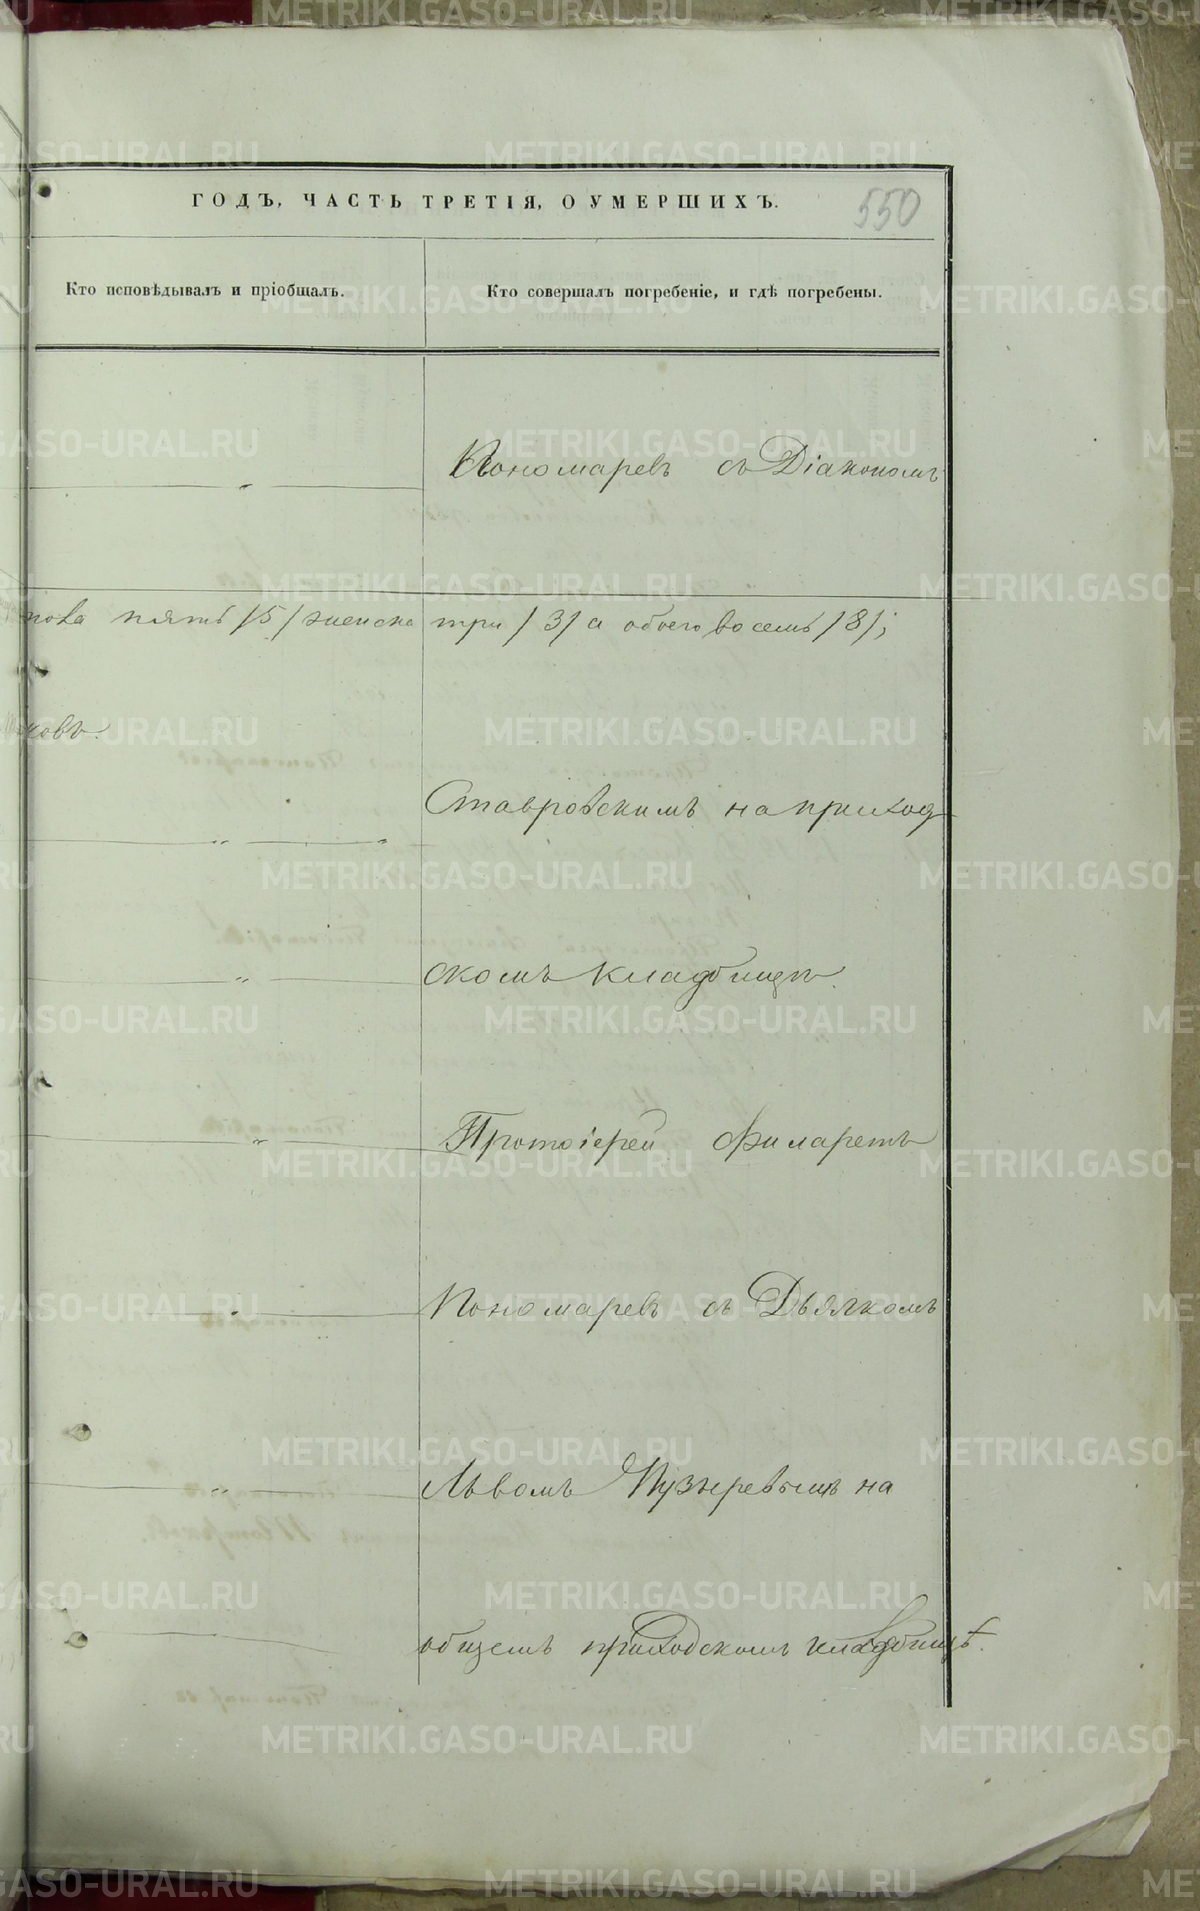 ГОДЪ, ЧАСТЬ ТРЕТІЯ, О УМЕРШИХЪ.
550
Кто исповѣдывалъ и пріобщалъ.
Кто совершалъ погребеніе, и гдѣ погребены.
Пономаревъ съ Діакономъ
пола пять /5/ женска три /3/ а обоего восемь /8/;
ковъ.
Ставровскимъ на приход
скомъ кладбищѣ.
Протоіерей Филаретъ
Пономаревъ съ Дьячкомъ
Львомъ Пузыревымъ на
общемъ приходскомъ кладбищѣ.
METRIKI.GASO-URAL.RU